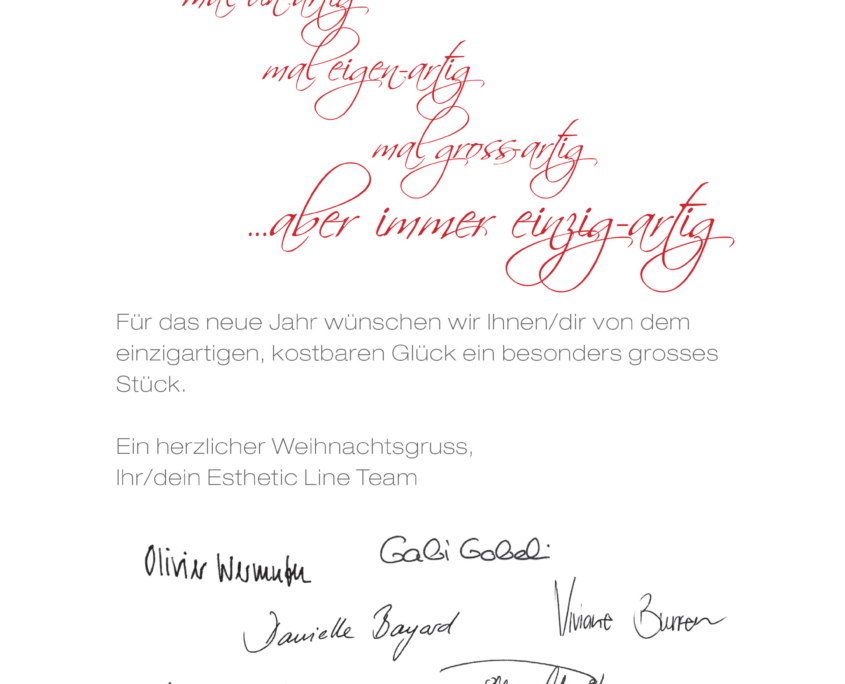 mal
mal eigen-artig
mal gross-artig
...aber immer einzig-artig
Für das neue Jahr wünschen wir Ihnen/dir von dem
einzigartigen, kostbaren Glück ein besonders grosses
Stück.
Ein herzlicher Weihnachtsgruss,
Ihr/dein Esthetic Line Team
Olivier Wermuth Gabi Gobeli
Danielle Bayard Viviane Burren